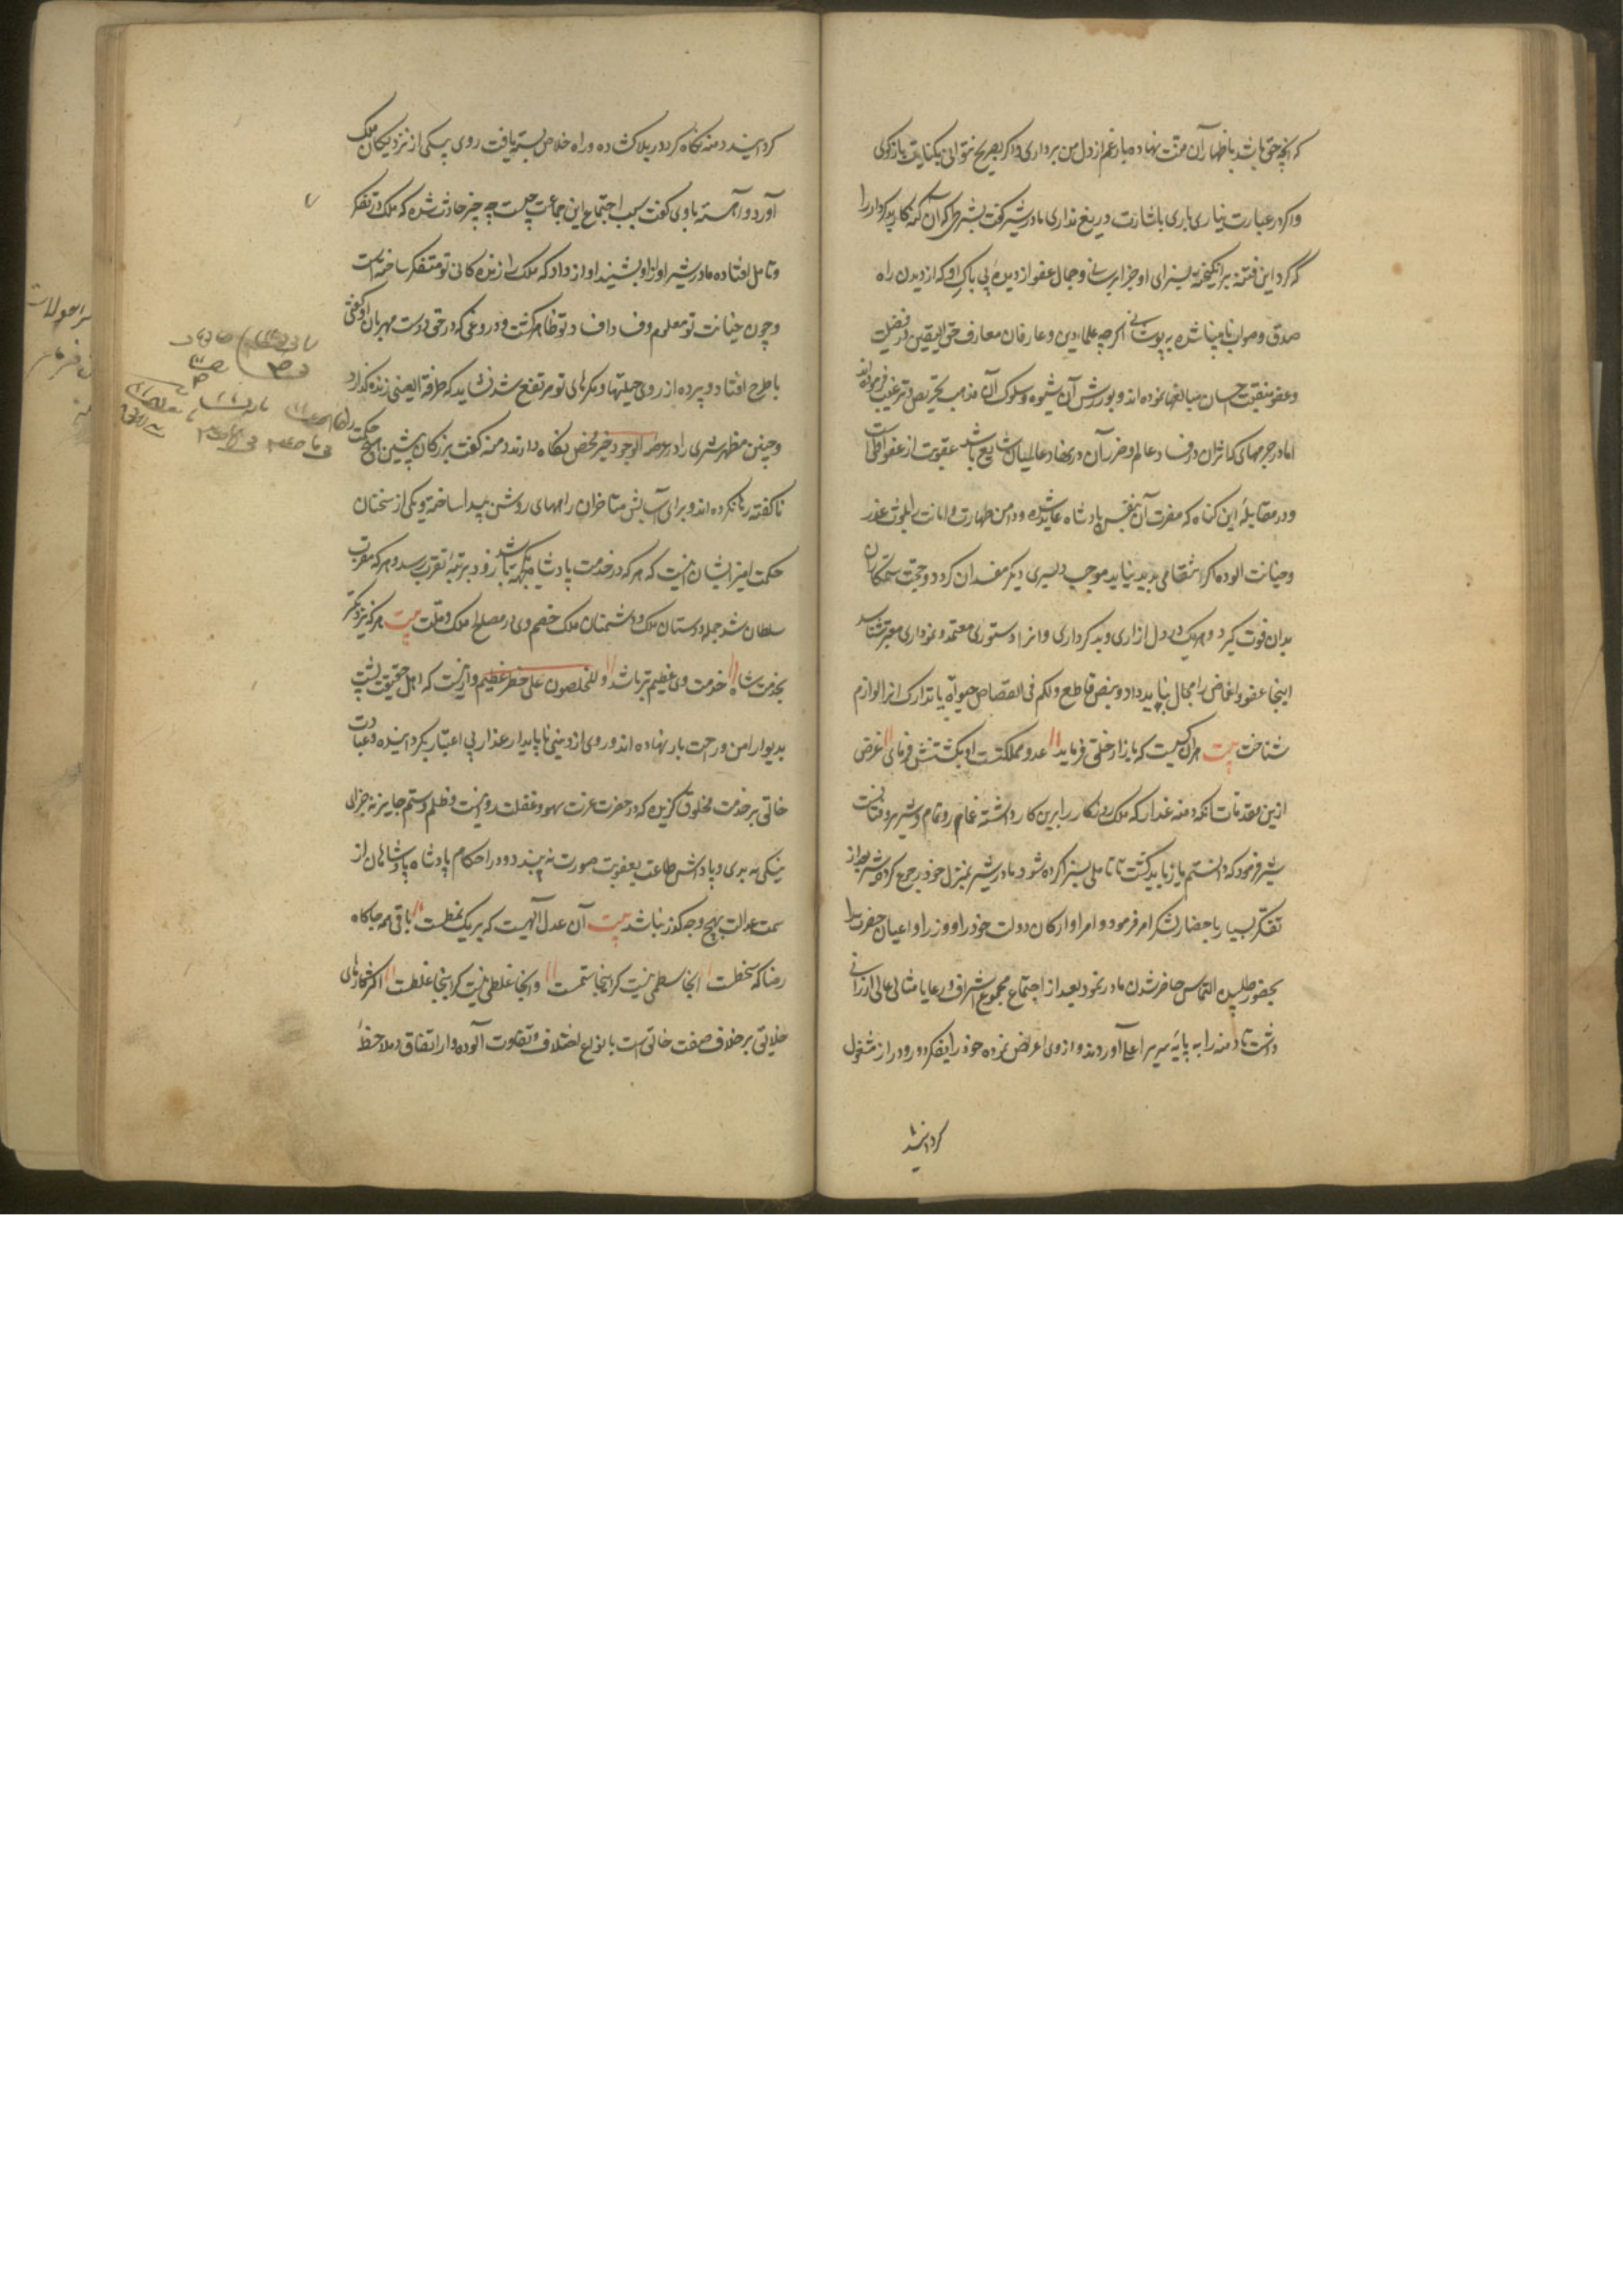 که آنچه حق باشد باظهار آن منت نهاده مبارغم از دل من برداری و اگر بصریح نتوانی بکنایت بازگوی
و اگر در عبارت نیاری باری باشارت دریغ نداری مادر شیر گفت بشرط آنکه آن گنه کار بدکردار را
که گرد این فتنه برانگیخته بسزای او جزا برسانی و جمال عفو از دیده بی باک او که از دیدن راه
صدق و صواب نابینا شده بپوشانی اگرچه علماء دین و عارفان معارف حق الیقین در فضیلت
و عفو منقبت احسان مبالغها نموده اند و بورزش آن شیوه و سلوک آن مذهب تحریص و ترغیب فرموده اند
اما در جرمهای که اثر آن در فساد عالم و ضرر آن در نهاد عالمیان شایع باشد عقوبت از عفو اولی است
و در مقابله این گناه که مضرت آن بنفس پادشاه عاید شده و دامن طهارت و امانت را بلوث غدر
و خیانت آلوده اگر انتقامی پدید نیاید موجب دلیری دیگر مفسدان گردد و حجت ستمکاران
بدان قوت گیرد و هر یک در دل ازاری و بدکرداری و انرا دستوری معتمد و نموداری معتبر شناسند
اینجا عفو و اغماض را مجال نباید داد و بنص قاطع ولکم فی القصاص حیوة یا تدارک انرا لوازم
شناخت بیت هر آن کسیت که بازار خلق فرماید عدو مملکتست او بکشتنش فرمای غرض
ازین مقدمات آنکه دمنه غدار که ملک روزگار را برین کار داشته غماز و نمام و شریر و فتانست
شیر فرمود که دانستم باز باید گشت تا تاملی بسزا کرده شود مادر شیر بمنزل خود رجوع کرد و شیر بعد از
تفکر بسیار باحضار لشکر امر فرمود و امرا و ارکان دولت خود را و وزرا و اعیان حضرت را
بحضور طلبیده التماس حاضر شدن مادر نمود بعد از اجتماع مجموع اشراف و رعایا مثالی عالی ارزانی
داشت تا دمنه را به پایه سریر اعلی آوردند و از وی اعراض نموده خود را بفکر دور و دراز مشغول
گردانید
گردانید دمنه نگاه کرد در بلا گشاده و راه خلاص بسته یافت روی بیکی از نزدیکان ملک
آورد و آهسته با وی گفت سبب اجتماع این جماعت چیست چه چیز حادث شده که ملک در تفکر
و تامل افتاده مادر شیر آواز او بشنید آواز داد که ملک را زندگانی تو متفکر ساخته است
و چون خیانت تو معلوم و فساد افساد تو ظاهر گشت و دروغی که در حق دوست مهربان او گفتی
باطرح افتاد و پرده از روی حیلتها و مکرهای تو مرتفع شد نشاید که طرفة العینی زنده گذارد
و چنین مظهر شری را در عرصه الوجود خیر محض نگاه دارند دمنه گفت بزرگان پیشین هیچ حکمت
ناگفته رها نکرده اند و برای آسایش متاخران راههای روشن پیدا ساخته و یکی از سخنان
حکمت امیز ایشان اینست که هر که در خدمت پادشاه یکجهت باشد زود برتبهٔ تقرب رسد و هر که مقرب
سلطان شد جمله دوستان ملک و دشمنان ملک خصم وی در مصلح ملک و ملت بیت هر که نزدیکتر
بخدمت شاه خدمت وی عظیم تر باشد والمخلصون علی خطر عظیم و ازینست که اهل حقیقت پشت
بدیوار امن و راحت باز نهاده اند و روی از دنیی ناپایدار غدار بی اعتبار بگردانیده و عبادت
خالق بر خدمت مخلوق گزیده که در حضرت عزت سهو و غفلت روا نیست و ظلم و ستم جایز نه جزای
نیکی به بدی و پاداش طاعت بعقوبت صورت نه بندد و در احکام پادشاه پادشاهان از
سمت عدالت بهیچ وجه گذر نباشد بیت آن عدل الهیست که بر یک نمطست باقی همه جا گاه
رضا که سخطست انجا ستمی نیست گر اینجا ستمست وانجا غلطی نیست گر اینجا غلطست اکثر کارهای
خلایق بر خلاف صفت خالق است بانواع اختلاف و تفاوت آلوده و از اتفاق در ملاحظه